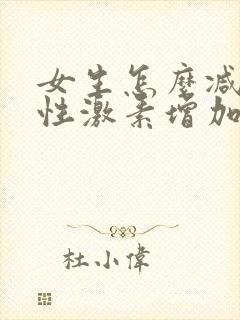 女生怎麽减
性激素增加
杜小偉